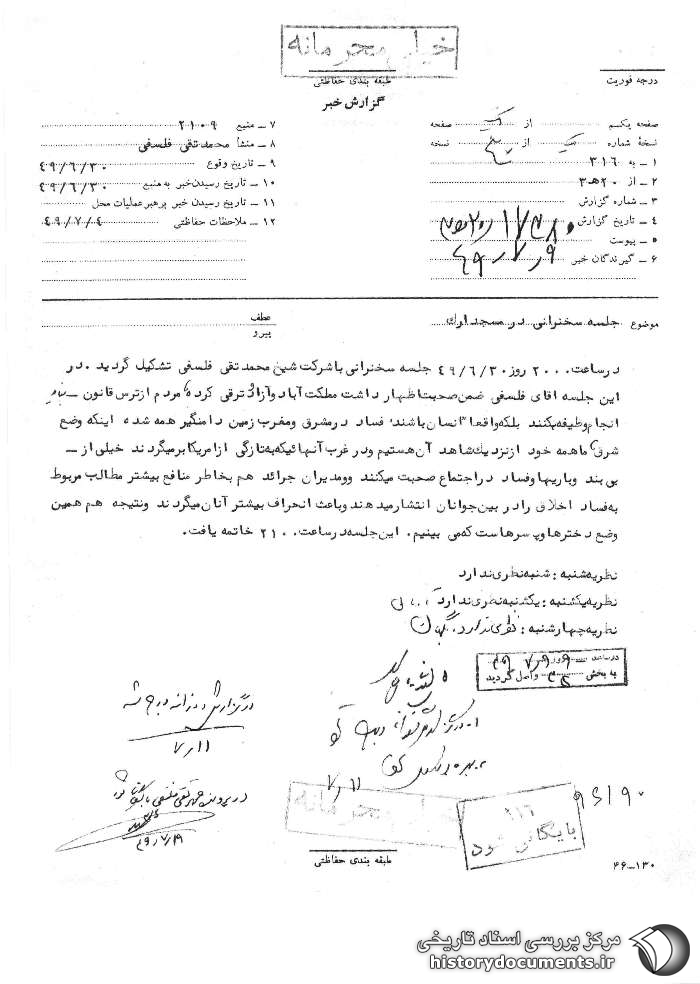 خیلی محرمانه
طبقه بندی حفاظتی
درجه فوریت
گزارش خبر
صفحه یکم از صفحه
نسخهٔ شماره از نسخه
۱ ـ به ۳۱۶
۲ ـ از ۲۰هـ۳
۳ ـ شماره گزارش
۴ ـ تاریخ گزارش
۵ ـ پیوست
۶ ـ گیرندگان خبر
۷ ـ منبع ۲۱۰۹
۸ ـ منشأ محمدتقی فلسفی
۹ ـ تاریخ وقوع ۴۹/۶/۳۰
۱۰ ـ تاریخ رسیدن خبر به منبع ۴۹/۶/۳۰
۱۱ ـ تاریخ رسیدن خبر برهبر عملیات محل
۱۲ ـ ملاحظات حفاظتی ۴۹/۷/۴
موضوع جلسه سخنرانی در مسجد ارك
عطف
پیرو
درساعت ۲۰۰۰ روز ۴۹/۶/۳۰ جلسه سخنرانی باشرکت شیخ محمدتقی فلسفی تشکیل گردید . در
این جلسه اقای فلسفی ضمن صحبت اظهار داشت مملکت آباد و آزاد و ترقی کرده مردم از ترس قانون ـ نباید
انجام وظیفه بکنند بلکه واقعا " انسان باشند فساد در مشرق و مغرب زمین دامنگیر همه شده اینکه وضع
شرق ما همه خود از نزدیك شاهد آن هستیم و در غرب آنهائیکه به تازگی از امریکا برمیگردند خیلی از ـ
بی بند و باریها و فساد در اجتماع صحبت میکنند و مدیران جرائد هم بخاطر منافع بیشتر مطالب مربوط
به فساد اخلاق را در بین جوانان انتشار میدهند و باعث انحراف بیشتر آنان میگردند و نتیجه هم همین
وضع دخترها و پسرهاست که می بینیم . این جلسه در ساعت ۲۱۰۰ خاتمه یافت.
نظریه شنبه : شنبه نظری ندارد
نظریه یکشنبه : یکشنبه نظری ندارد
نظریه چهارشنبه : نظری ندارد .
در ساعت روز ۹ر۷ر۴۹
به بخش واصل گردید
در گزارش روزانه درج شد
۷ر۱۱
۷ر۱۱
در پرونده محمدتقی فلسفی بایگانی شود
۴۹ر۷ر۱۹
خیلی محرمانه
طبقه بندی حفاظتی
۳۱۶
بایگانی شود
۴۶ـ۱۳۰
مرکز بررسی اسناد تاریخی
historydocuments.ir